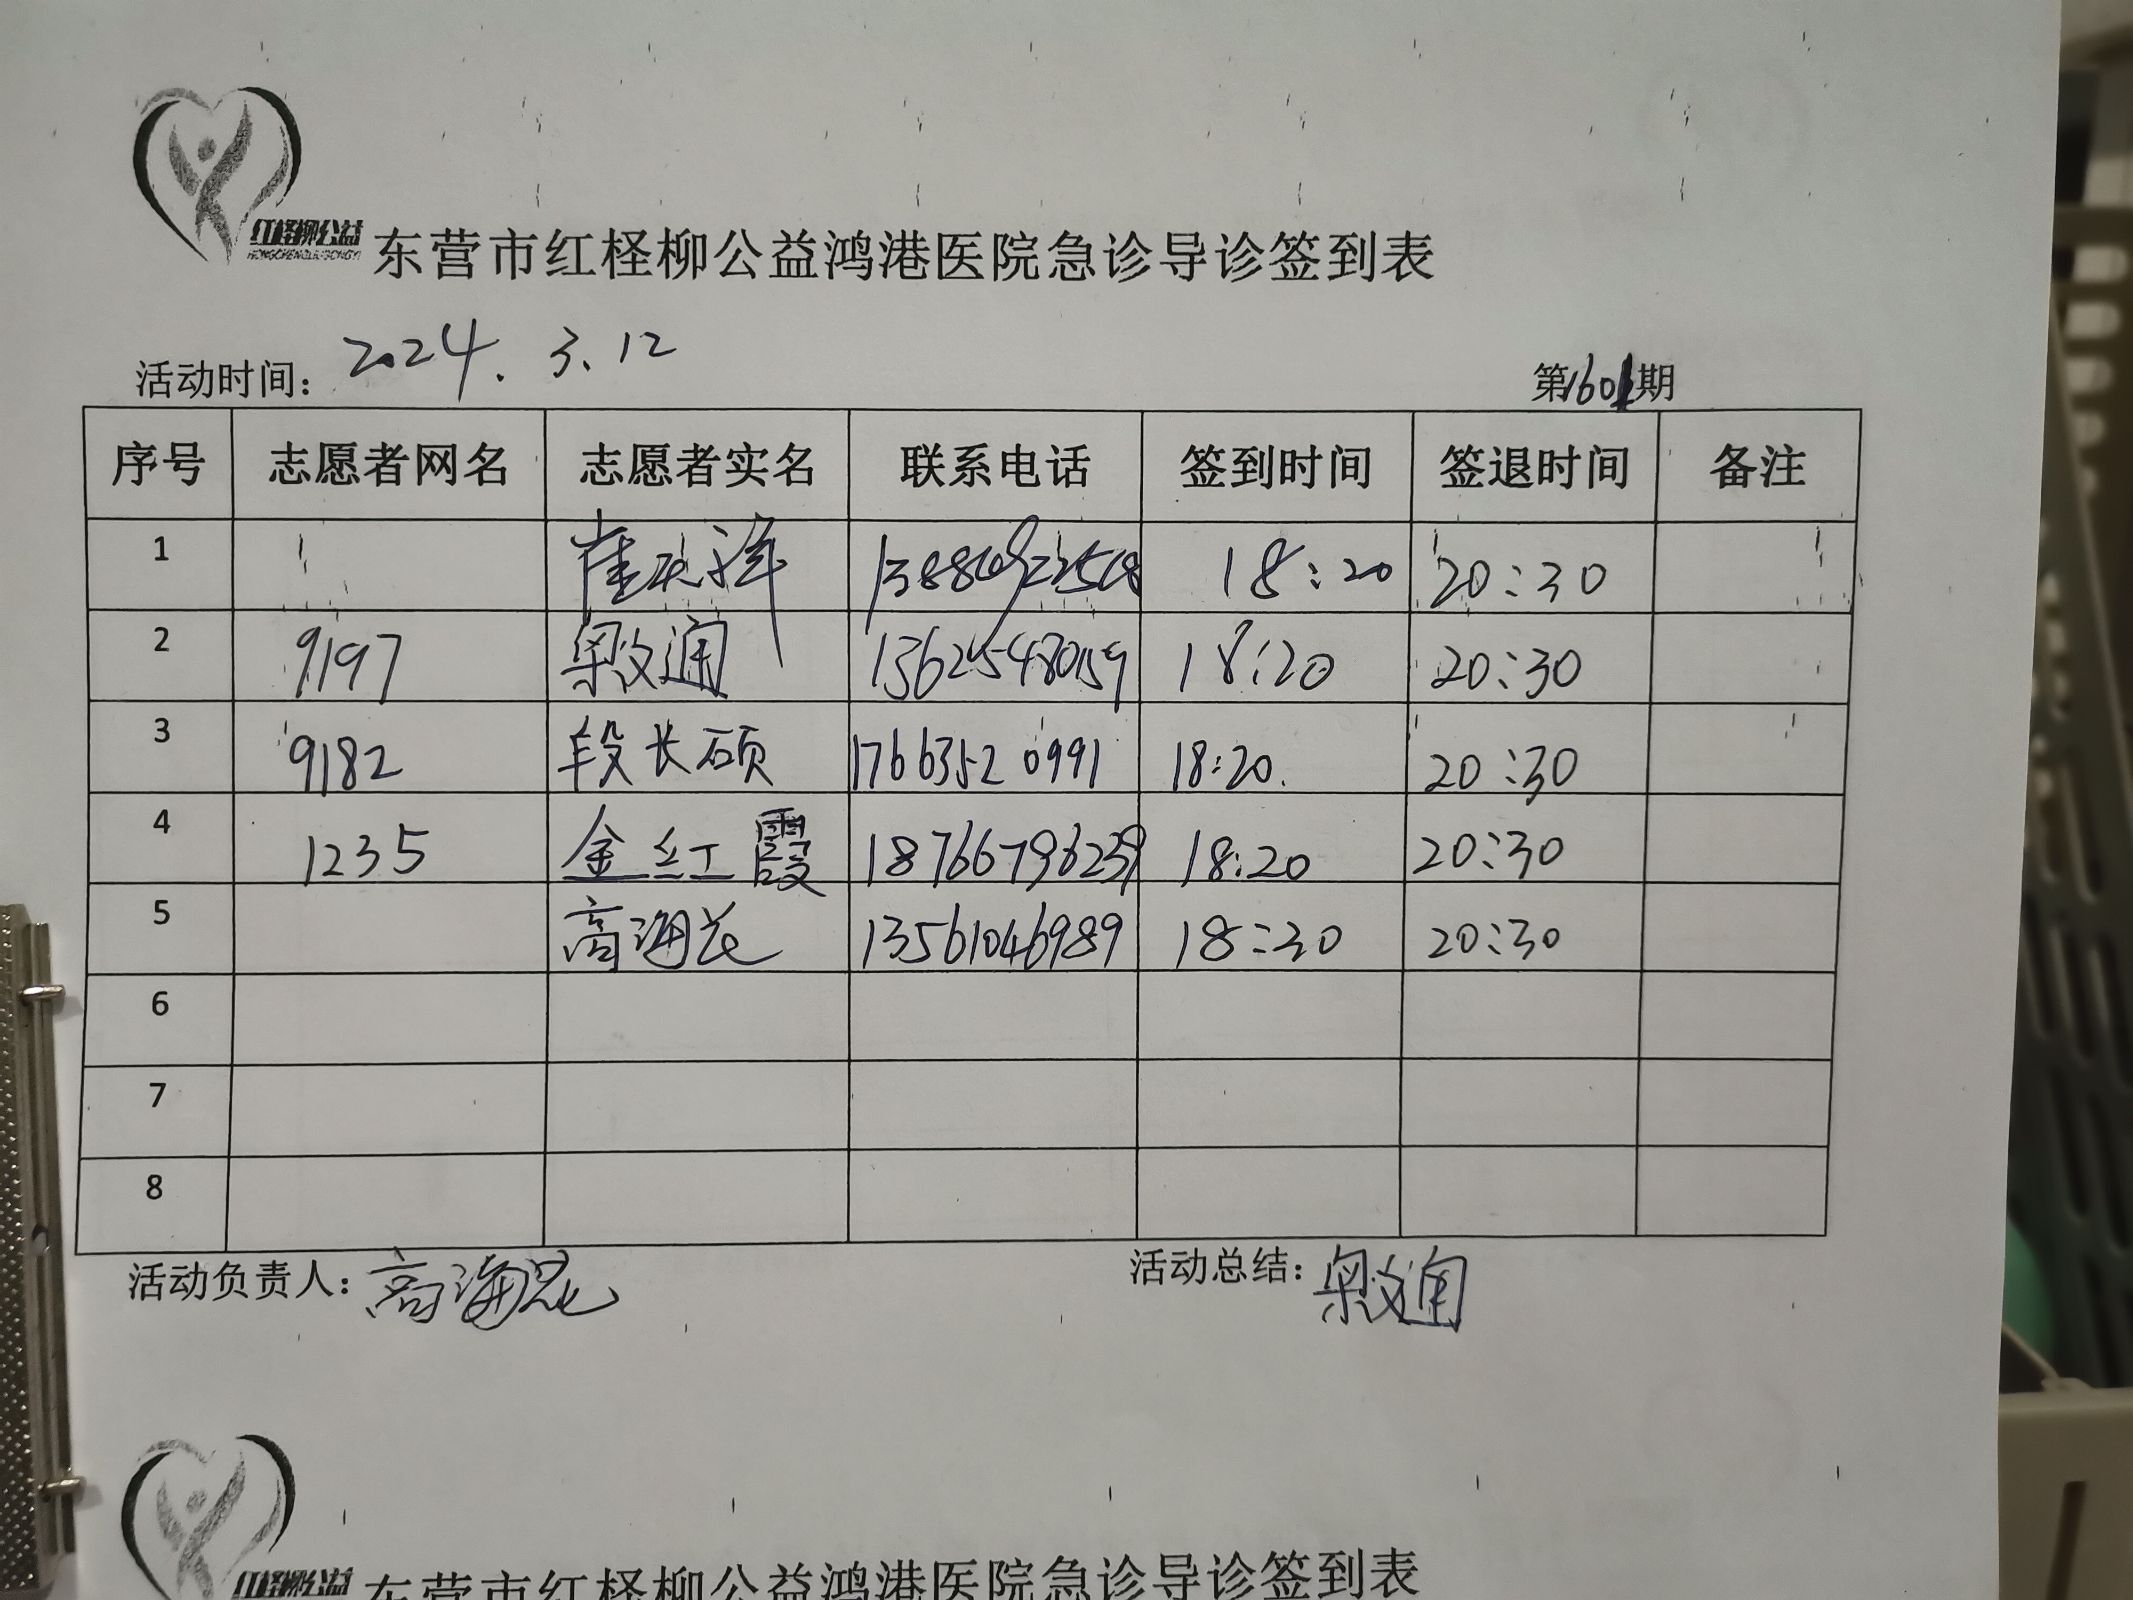 红柽柳公益
HONGCHENGLIUGONGYI
东营市红柽柳公益鸿港医院急诊导诊签到表
活动时间: 2024.3.12 第1601期
序号 志愿者网名 志愿者实名 联系电话 签到时间 签退时间 备注
1 18:20 20:30
2 9197 梁文通 13625480159 18:20 20:30
3 9182 段长硕 17663520991 18:20. 20:30
4 1235 金红霞 18766796239 18:20 20:30
5 高海花 13561046989 18:30 20:30
6
7
8
活动负责人: 高海花 活动总结: 梁文通
红柽柳公益 东营市红柽柳公益鸿港医院急诊导诊签到表